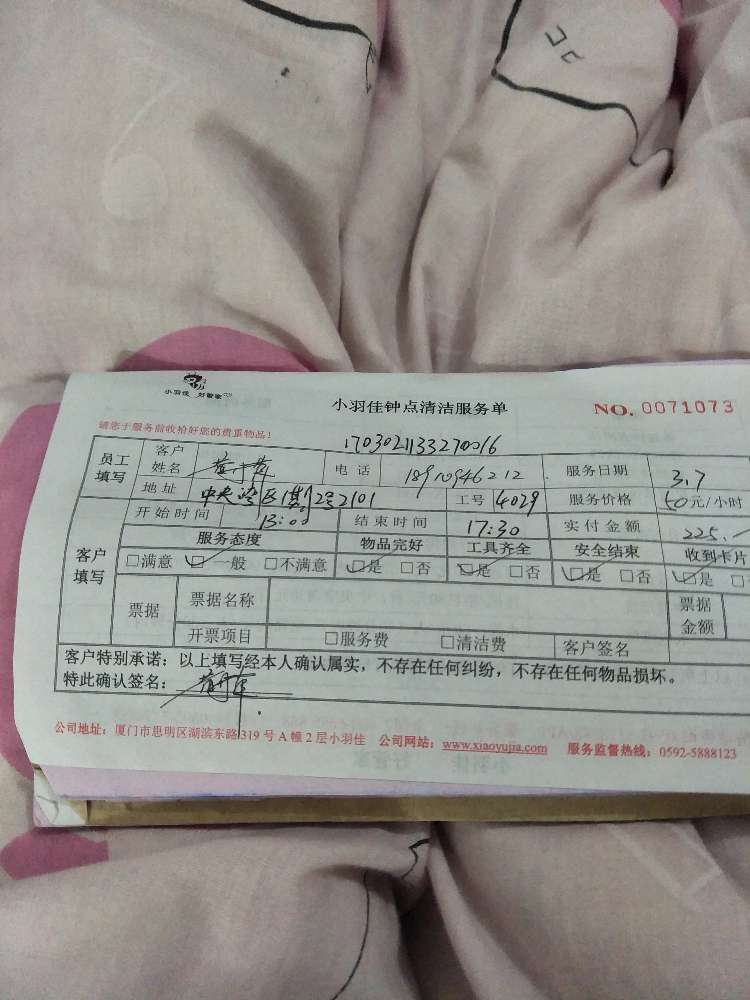 小羽佳 好管家
小羽佳钟点清洁服务单
NO. 0071073
请您于服务前收拾好您的贵重物品！
1703021133270016
员工填写 客户姓名 电话 18910946212 服务日期 3.7
地址 2号2101 工号 4029 服务价格 50元/小时
开始时间 13:00 结束时间 17:30 实付金额 225.一
客户填写 服务态度 物品完好 工具齐全 安全结束 收到卡片
□满意 □一般 □不满意 □是 □否 □是 □否 □是 □否 □是 □
票据 票据名称 票据金额
开票项目 □服务费 □清洁费 客户签名
客户特别承诺：以上填写经本人确认属实，不存在任何纠纷，不存在任何物品损坏。
特此确认签名：
公司地址：厦门市思明区湖滨东路319号A幢2层小羽佳 公司网站：www.xiaoyujia.com 服务监督热线：0592-5888123